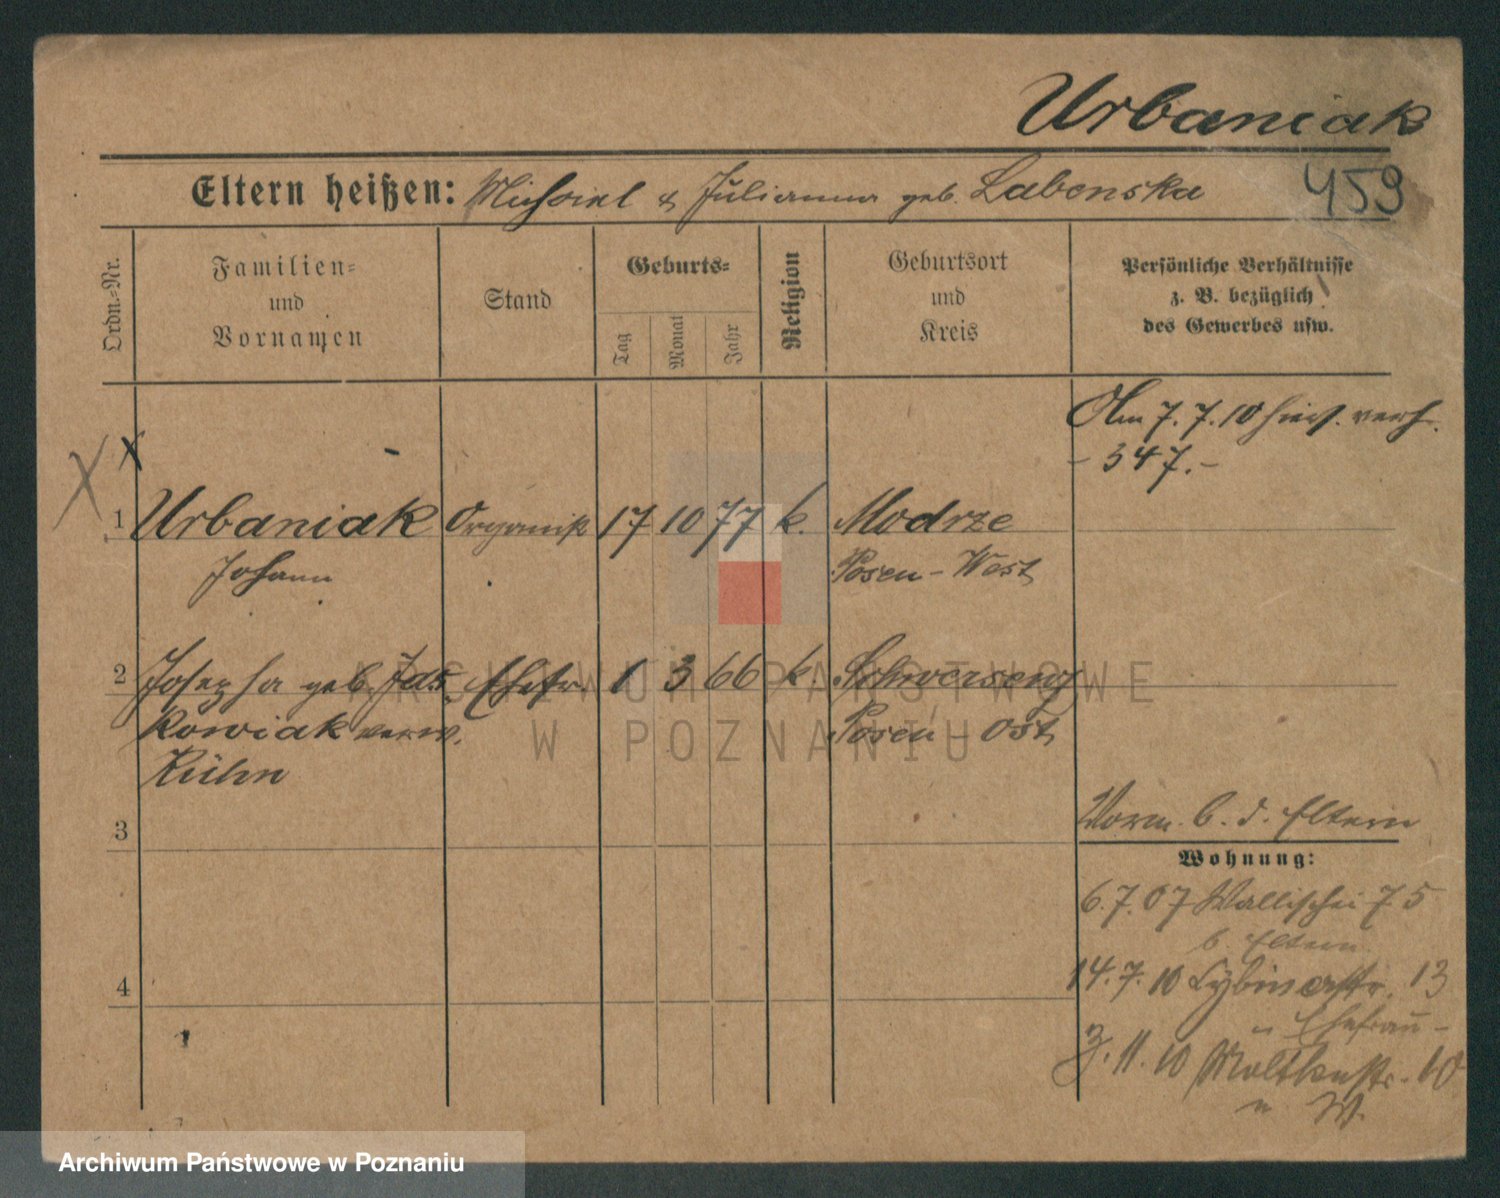 Urbaniak
Eltern heißen: Michael & Julianna geb. Labenska
459
Ordn.-Nr.
Familien-
und
Vornamen
Stand
Geburts-
Tag
Monat
Jahr
Religion
Geburtsort
und
Kreis
Persönliche Verhältnisse
z. B. bezüglich
des Gewerbes usw.
Am 7.7.10 hier verh.
- 347. -
1 Urbaniak Organist 17 10 77 k. Modrze
Johann Posen - West
2 Josepha geb. Jas Ehefr. 1 3 66 k. Schwersenz
kowiak verw. Posen - Ost
Kühn
3
Vorm. b. d. Eltern
Wohnung:
6.7.07 Wallischei 75
b. Eltern
4
14.7.10 Cybinastr. 13
u Ehefrau -
3.11.10 Moltkestr. 10
ARCHIWUM PAŃSTWOWE
W POZNANIU
Archiwum Państwowe w Poznaniu